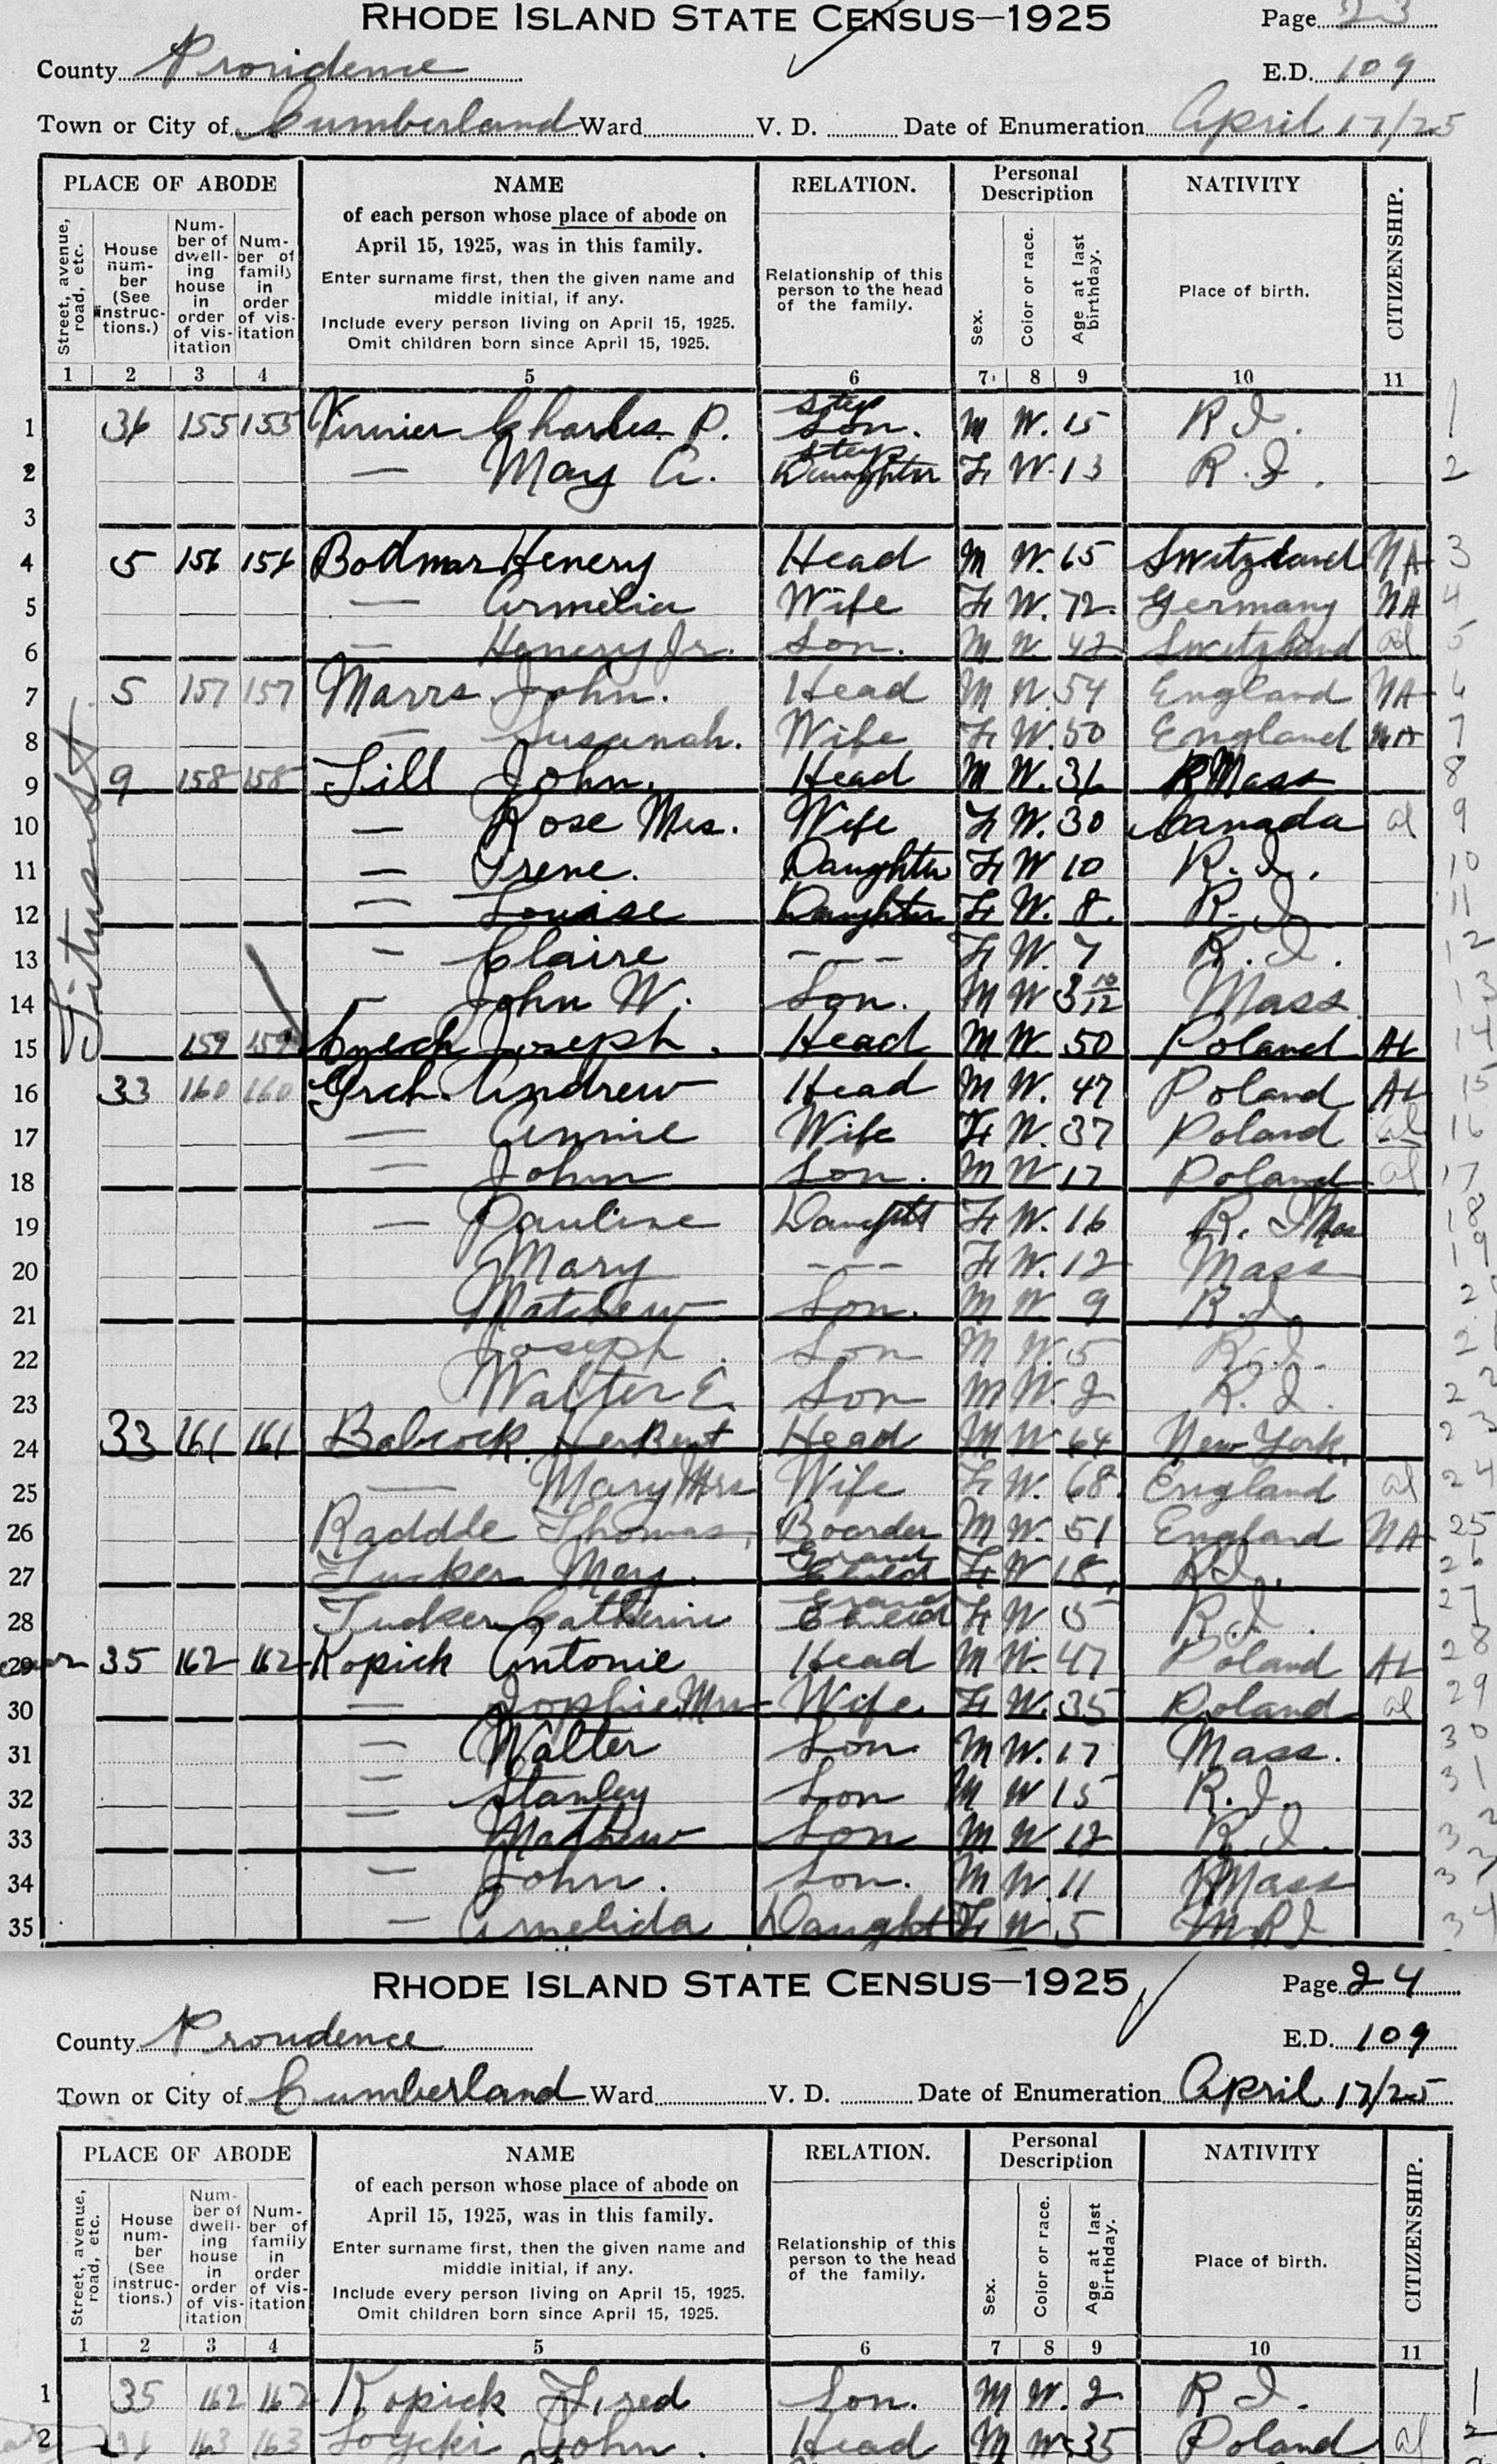 RHODE ISLAND STATE CENSUS—1925 Page 23
County Providence E.D. 109
Town or City of Cumberland Ward V. D. Date of Enumeration April 17/25
PLACE OF ABODE NAME RELATION. Personal Description NATIVITY CITIZENSHIP.
Street, avenue, road, etc. House number (See instructions.) Number of dwelling house in order of visitation Number of family in order of visitation
of each person whose place of abode on April 15, 1925, was in this family.
Enter surname first, then the given name and middle initial, if any.
Include every person living on April 15, 1925. Omit children born since April 15, 1925.
Relationship of this person to the head of the family. Sex. Color or race. Age at last birthday. Place of birth.
1 2 3 4 5 6 7 8 9 10 11
Titus st
1 36 155 155 Charles P. step Son. M W. 15 R I. 1
2 — May A. step Daughter F W. 13 R. I. 2
3
4 5 156 156 Bodmar Henery Head M W. 65 Switzland NA 3
5 — Armelia Wife F W. 72. Germany NA 4
6 — Henery Jr. Son. M W. 42 Switzland al 5
7 5 157 157 Marrs John. Head M W. 54 England NA 6
8 — Susanah. Wife F W. 50 England NA 7
9 9 158 158 Sill John. Head M W. 36 Mass 8
10 — Rose Mrs. Wife F W. 30 Canada al 9
11 — Irene. Daughter F W 10 R. I. 10
12 — Louise Daughter F W. 8. R. I. 11
13 — Claire - - - F W. 7 R. I. 12
14 — John W. Son. M W 3 10/12 Mass 13
15 159 159 Joseph. Head M W. 50 Poland AL 14
16 33 160 160 Grch Andrew Head M W. 47 Poland AL 15
17 — Annie Wife F W. 37 Poland al 16
18 — John Son. M W 17 Poland al 17
19 — Pauline Daught F W. 16 R. I Mas 18
20 Mary - - - F W. 12 Mass 19
21 Mathew Son. M W 9 R. I. 2
22 Joseph. Son M W. 5 R. I. 2
23 Walter E. Son M W. 2 R. I. 22
24 33 161 161 Babcock Herbert Head M W 64 New York. 23
25 — Mary Mrs Wife F W. 68 England al 24
26 Raddle Thomas, Boarder M W. 51 England NA 25
27 Tucker May. Grand Child F W 18. R. I. 26
28 Tucker Catherine Grand Child F W 5 R. I. 27
29 35 162 162 Kopick Antonie Head M W. 47 Poland AL 28
30 — Sophie Mrs Wife. F W. 35 Poland al 29
31 — Walter Son M W. 17 Mass. 30
32 — Stanley Son M W 15 R. I. 31
33 — Mathew Son M W 12 R I. 32
34 — John. Son. M W. 11 Mass 33
35 — Amelida Daught F W 5 R I 34
RHODE ISLAND STATE CENSUS—1925 Page 24
County Providence E.D. 109
Town or City of Cumberland Ward V. D. Date of Enumeration April 17/25
PLACE OF ABODE NAME RELATION. Personal Description NATIVITY CITIZENSHIP.
Street, avenue, road, etc. House number (See instructions.) Number of dwelling house in order of visitation Number of family in order of visitation
of each person whose place of abode on April 15, 1925, was in this family.
Enter surname first, then the given name and middle initial, if any.
Include every person living on April 15, 1925. Omit children born since April 15, 1925.
Relationship of this person to the head of the family. Sex. Color or race. Age at last birthday. Place of birth.
1 2 3 4 5 6 7 8 9 10 11
1 35 162 162 Kopick Fred Son. M W. 2 R I. 1
2 163 163 John. Head M W. 35 Poland al 2